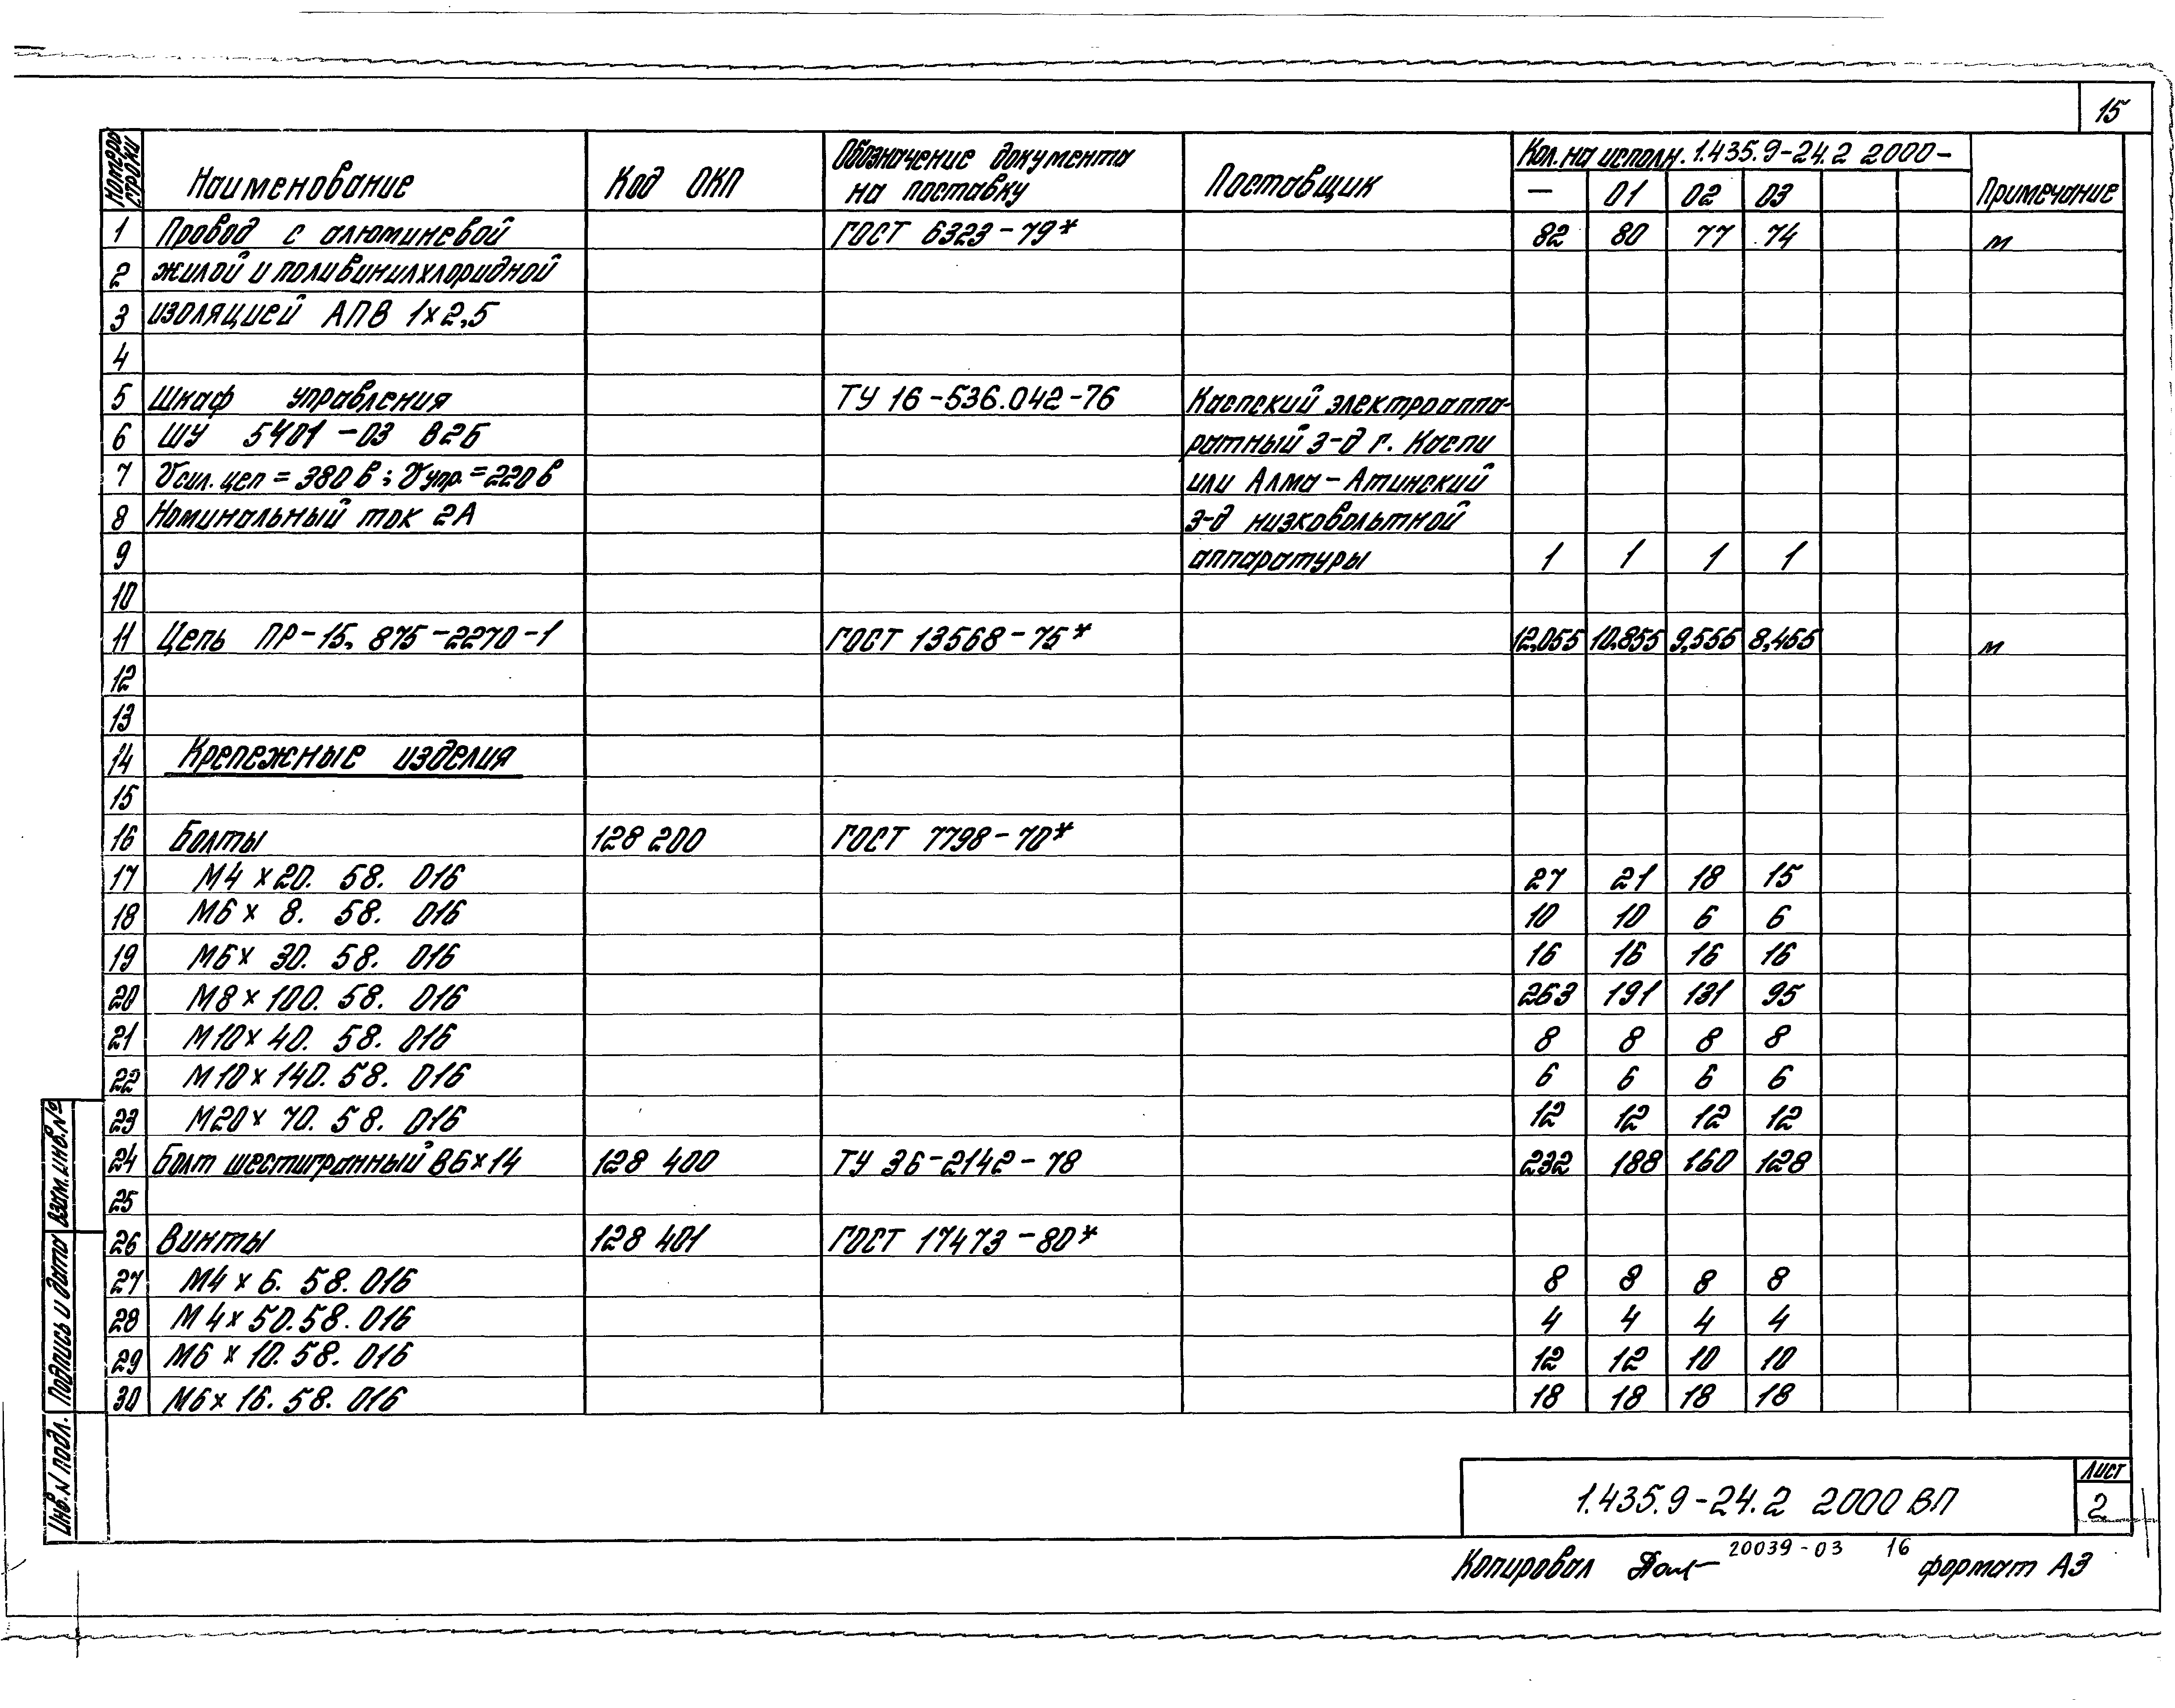 15
Номера строки | Наименование | Код ОКП | Обозначение документа на поставку | Поставщик | Кол. на исполн. 1.435.9-24.2 2000- | Примечание
— | 01 | 02 | 03
1 | Провод с алюминевой | ГОСТ 6323-79* | 82 | 80 | 77 | 74 | м
2 | жилой и поливинилхлоридной
3 | изоляцией АПВ 1×2,5
4
5 | Шкаф управления | ТУ 16-536.042-76 | Каспский электроаппа-
6 | ШУ 5401-03 В2Б | ратный з-д г. Каспи
7 | Uсил. цеп = 380 в; Uупр. = 220 в | или Алма-Атинский
8 | Номинальный ток 2А | з-д низковольтной
9 | аппаратуры | 1 | 1 | 1 | 1
10
11 | Цепь ПР-15, 875-2270-1 | ГОСТ 13568-75* | 12,055 | 10,855 | 9,555 | 8,455 | м
12
13
14 | Крепежные изделия
15
16 | Болты | 128 200 | ГОСТ 7798-70*
17 | М4×20. 58. 016 | 27 | 21 | 18 | 15
18 | М6× 8. 58. 016 | 10 | 10 | 6 | 6
19 | М6× 30. 58. 016 | 16 | 16 | 16 | 16
20 | М8×100. 58. 016 | 263 | 191 | 131 | 95
21 | М10×40. 58. 016 | 8 | 8 | 8 | 8
22 | М10×140. 58. 016 | 6 | 6 | 6 | 6
23 | М20× 70. 58. 016 | 12 | 12 | 12 | 12
24 | Болт шестигранный В6×14 | 128 400 | ТУ 36-2142-78 | 232 | 188 | 160 | 128
25
26 | Винты | 128 401 | ГОСТ 17473-80*
27 | М4×6. 58. 016 | 8 | 8 | 8 | 8
28 | М4×50. 58. 016 | 4 | 4 | 4 | 4
29 | М6×10. 58. 016 | 12 | 12 | 10 | 10
30 | М6×16. 58. 016 | 18 | 18 | 18 | 18
Взам. инв. №
Подпись и дата
Инв. N подл.
1.435.9-24.2 2000 ВП
Лист
2
Копировал 20039-03 16 формат А3